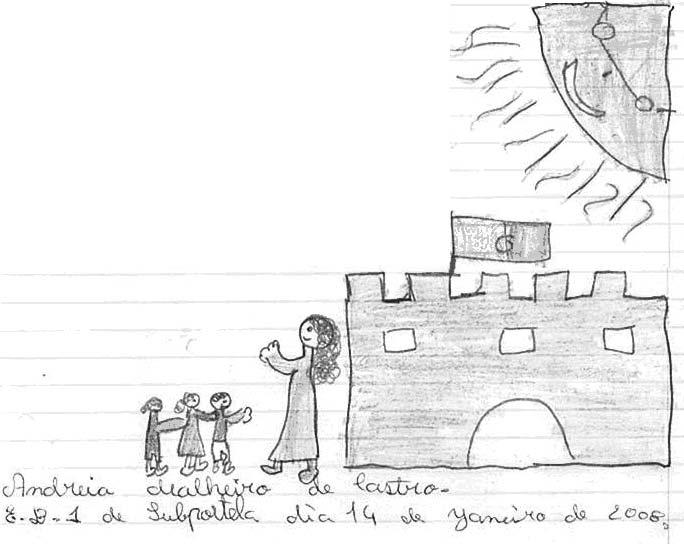 Andreia Malheiro de Castro.
E.B.1 de Subportela dia 14 de Janeiro de 2008.